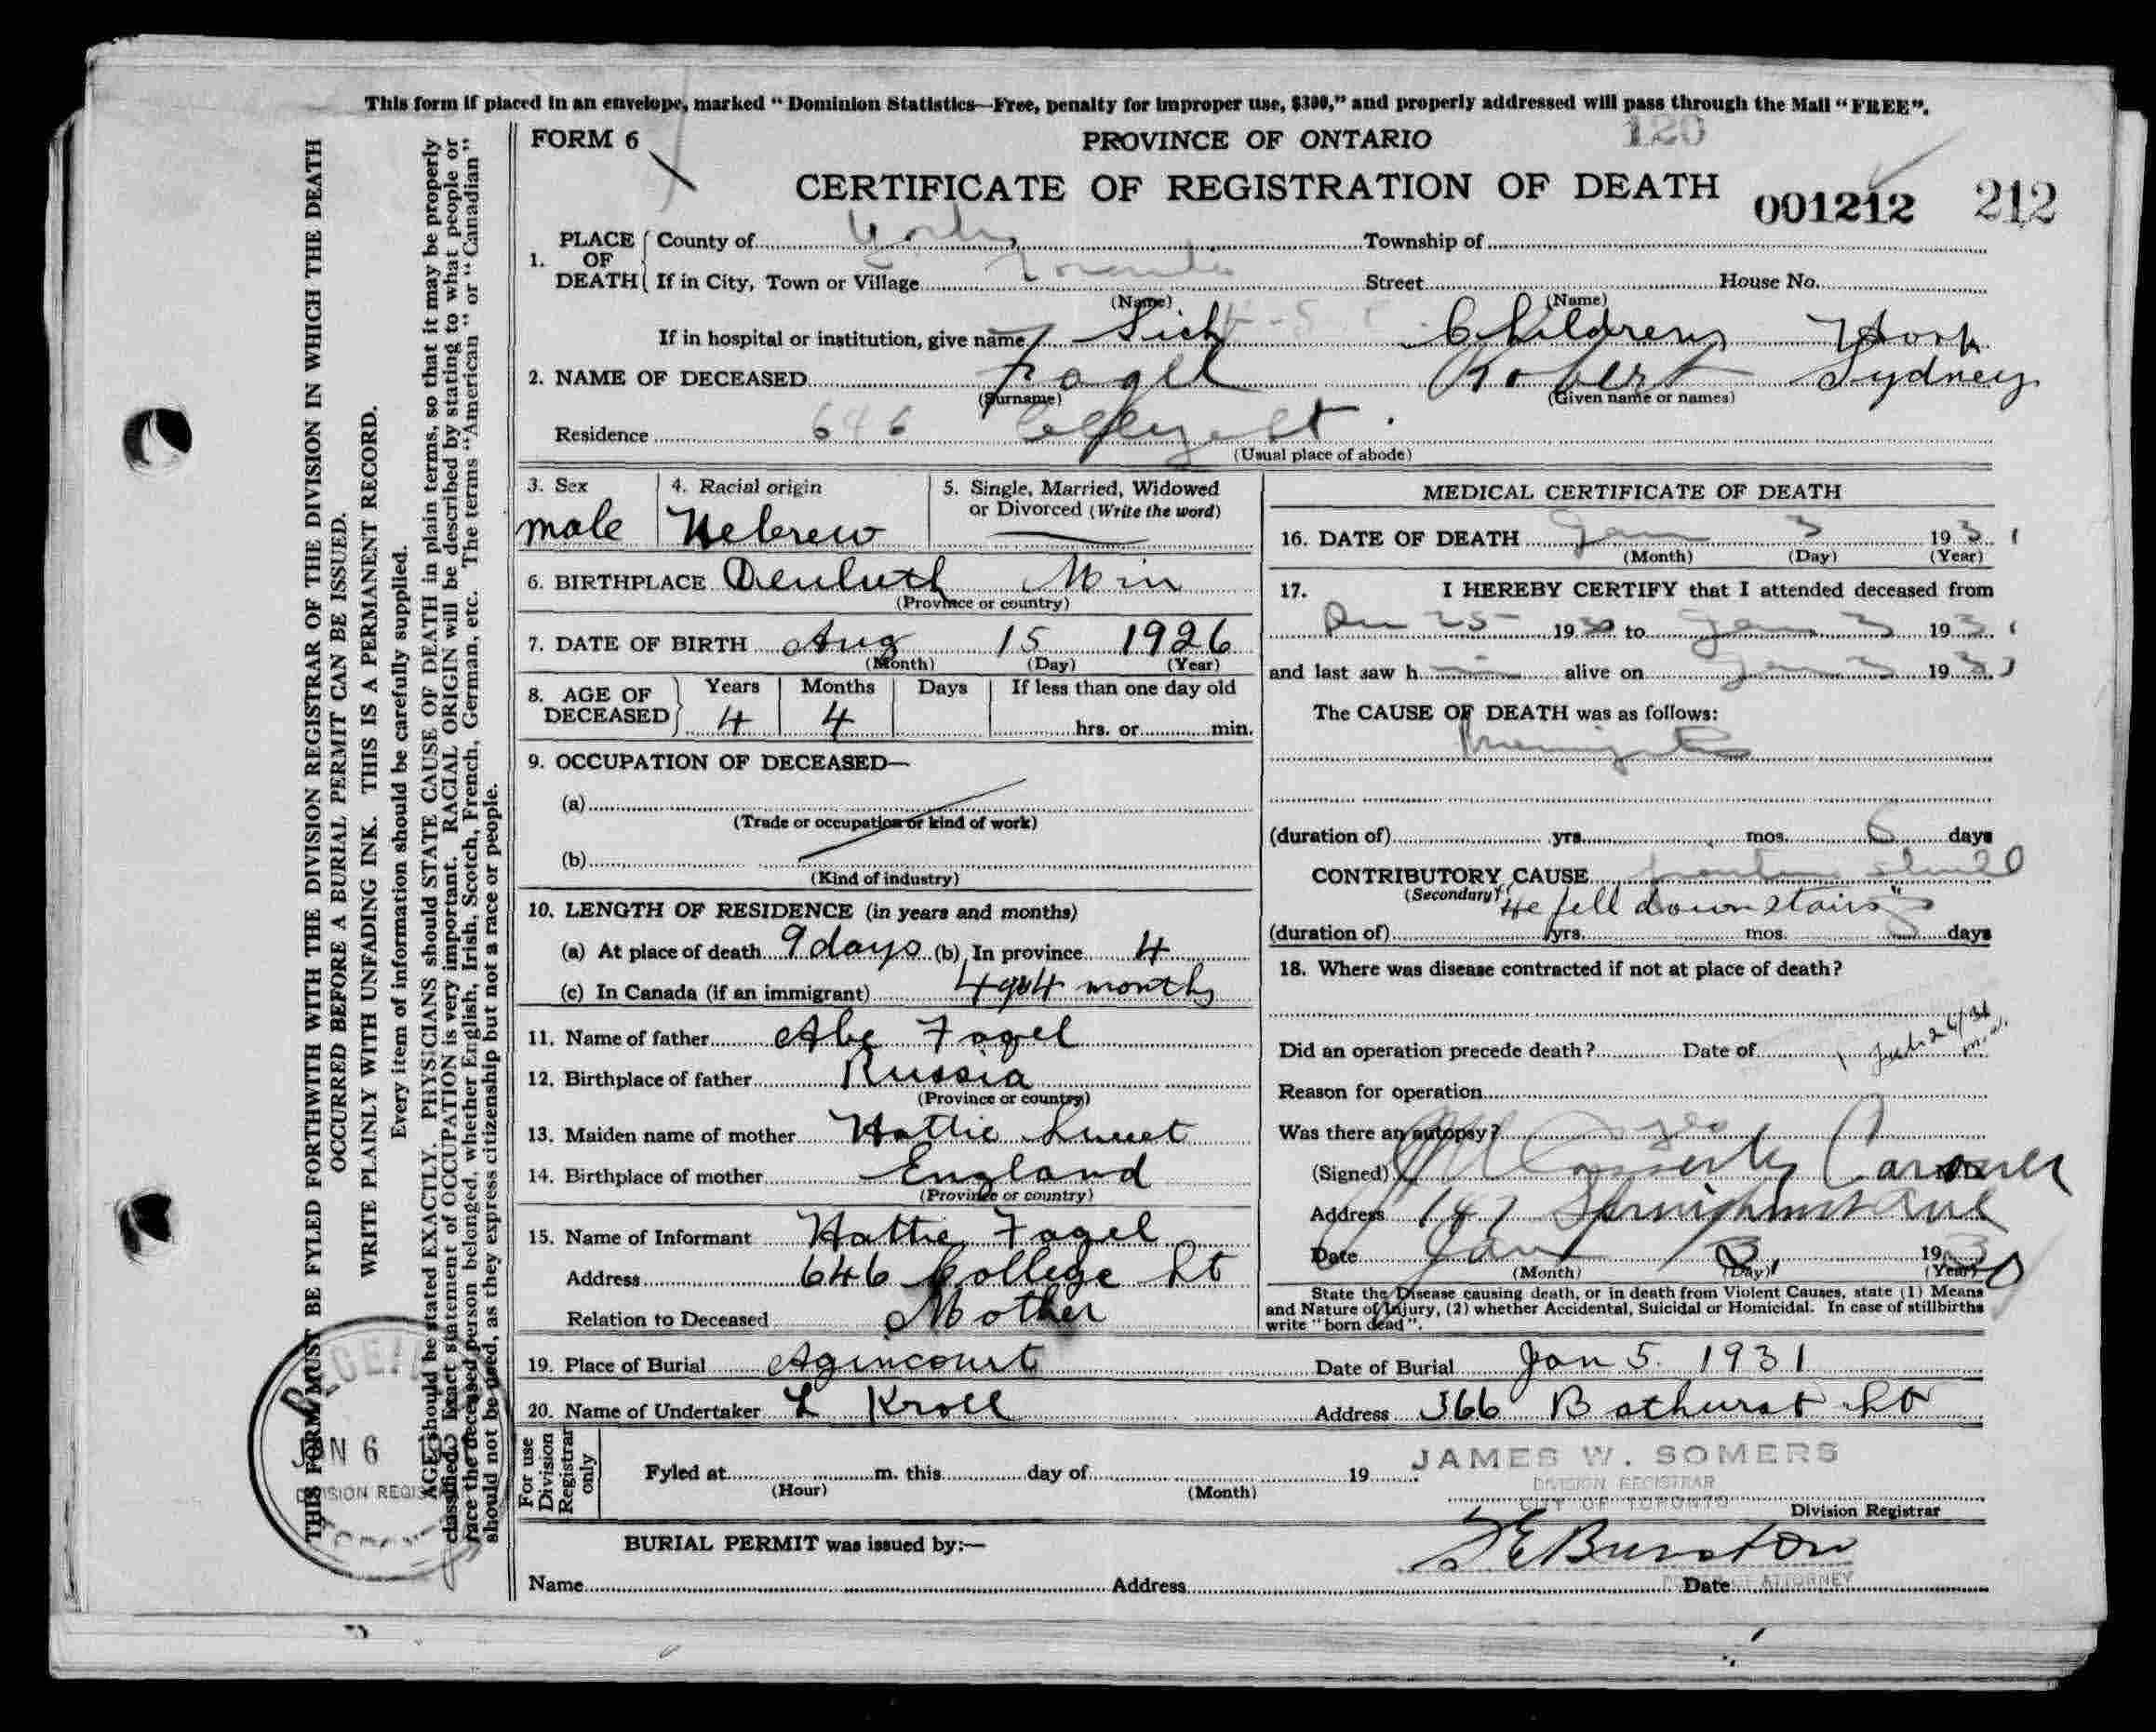 This form if placed in an envelope, marked “Dominion Statistics—Free, penalty for improper use, $300,” and properly addressed will pass through the Mail “FREE”.
THIS FORM MUST BE FYLED FORTHWITH WITH THE DIVISION REGISTRAR OF THE DIVISION IN WHICH THE DEATH
OCCURRED BEFORE A BURIAL PERMIT CAN BE ISSUED.
WRITE PLAINLY WITH UNFADING INK. THIS IS A PERMANENT RECORD.
Every item of information should be carefully supplied.
AGE should be stated EXACTLY. PHYSICIANS should STATE CAUSE OF DEATH in plain terms, so that it may be properly
classified. Exact statement of OCCUPATION is very important. RACIAL ORIGIN will be described by stating to what people or
race the deceased person belonged, whether English, Irish, Scotch, French, German, etc. The terms “American” or “Canadian”
should not be used, as they express citizenship but not a race or people.
FORM 6 PROVINCE OF ONTARIO 120
CERTIFICATE OF REGISTRATION OF DEATH 001212 212
1. PLACE OF DEATH County of York Township of
If in City, Town or Village Toronto Street House No.
(Name) (Name)
If in hospital or institution, give name Sick Childrens Hosp
2. NAME OF DECEASED Fogel Robert Sydney
(Surname) (Given name or names)
Residence 646 College St.
(Usual place of abode)
3. Sex male
4. Racial origin Hebrew
5. Single, Married, Widowed
or Divorced (Write the word)
6. BIRTHPLACE Deuluth Min
(Province or country)
7. DATE OF BIRTH Aug 15 1926
(Month) (Day) (Year)
8. AGE OF DECEASED Years 4 Months 4 Days If less than one day old
hrs. or min.
9. OCCUPATION OF DECEASED—
(a)
(Trade or occupation or kind of work)
(b)
(Kind of industry)
10. LENGTH OF RESIDENCE (in years and months)
(a) At place of death 9 days (b) In province 4
(c) In Canada (if an immigrant) 4 months
11. Name of father Abe Fogel
12. Birthplace of father Russia
(Province or country)
13. Maiden name of mother Hattie
14. Birthplace of mother England
(Province or country)
15. Name of Informant Hattie Fogel
Address 646 College St
Relation to Deceased Mother
MEDICAL CERTIFICATE OF DEATH
16. DATE OF DEATH Jan 3 1931
(Month) (Day) (Year)
17. I HEREBY CERTIFY that I attended deceased from
Dec 25 1930 to Jan 3 1931
and last saw him alive on Jan 3 1931
The CAUSE OF DEATH was as follows:
Meningitis
(duration of) yrs. mos. 6 days
CONTRIBUTORY CAUSE fracture skull
(Secondary) He fell down stairs
(duration of) yrs. mos. days
18. Where was disease contracted if not at place of death?
Did an operation precede death? Date of
Reason for operation
Was there an autopsy? yes
(Signed) Coroner
Address 147 Springhurst Ave
Date Jan 3, 1930
(Month) (Day) (Year)
State the Disease causing death, or in death from Violent Causes, state (1) Means
and Nature of Injury, (2) whether Accidental, Suicidal or Homicidal. In case of stillbirths
write “born dead”.
19. Place of Burial Agincourt Date of Burial Jan 5. 1931
20. Name of Undertaker L Kroll Address 366 Bathurst St
For use Division Registrar only
Fyled at m. this day of 19
(Hour) (Month)
JAMES W. SOMERS
DIVISION REGISTRAR
CITY OF TORONTO
Division Registrar
BURIAL PERMIT was issued by:—
S E Burston
Name Address Date
ATTORNEY
RECEIVED
JAN 6
DIVISION REGISTRAR
TORONTO